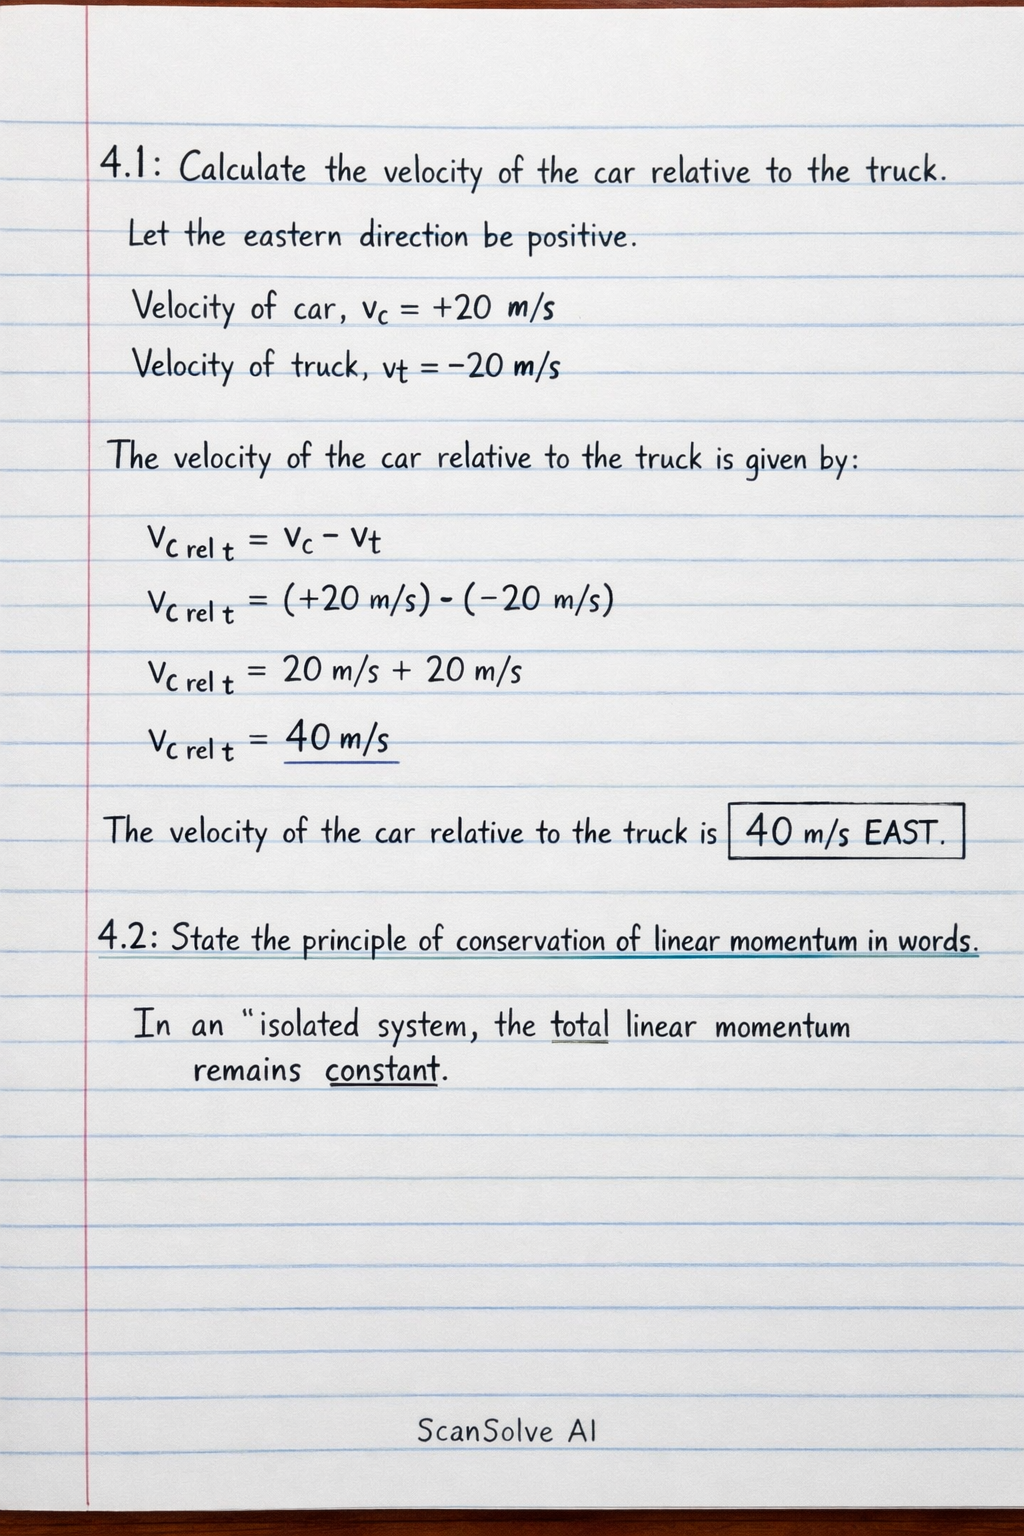 4.1: Calculate the velocity of the car relative to the truck.
Let the eastern direction be positive.
Velocity of car, vc = +20 m/s
Velocity of truck, vt = -20 m/s
The velocity of the car relative to the truck is given by:
Vc rel t = Vc - Vt
Vc rel t = (+20 m/s) - (-20 m/s)
Vc rel t = 20 m/s + 20 m/s
Vc rel t = 40 m/s
The velocity of the car relative to the truck is 40 m/s EAST.
4.2: State the principle of conservation of linear momentum in words.
In an “isolated system, the total linear momentum
remains constant.
ScanSolve AI